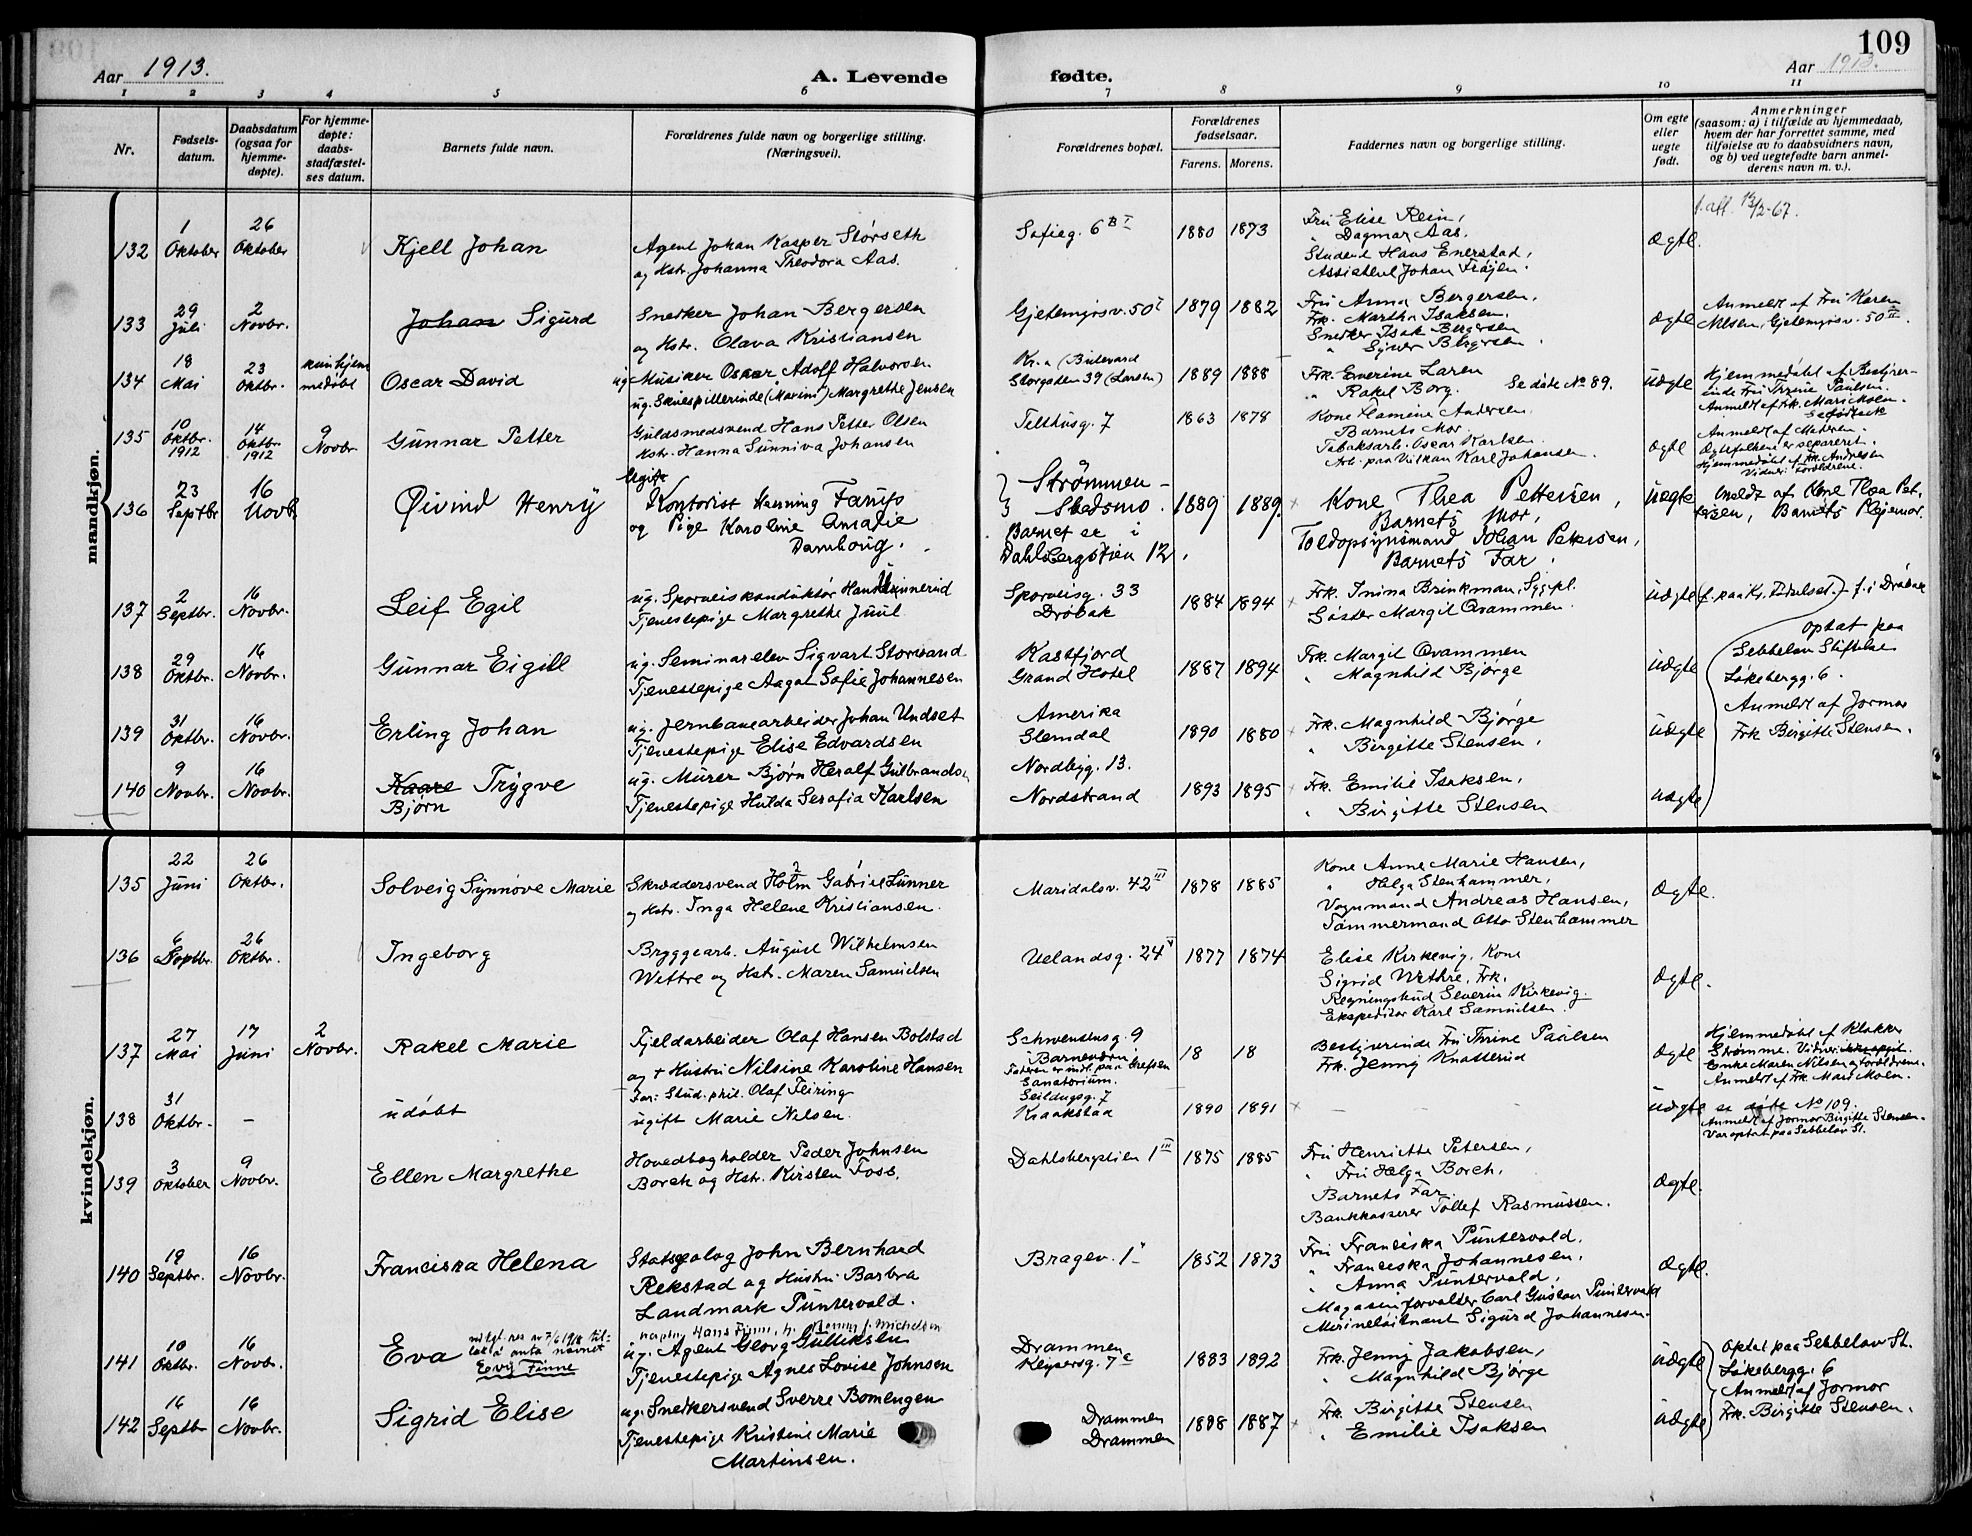 109
Aar 1913.
A. Levende fødte.
Aar 1913.
1 2 3 4 5 6 7 8 9 10 11
Nr.
Fødsels-
datum.
Daabsdatum
(ogsaa for
hjemme-
døpte).
For hjemme-
døpte:
daabs-
stadfæstel-
ses datum.
Barnets fulde navn.
Forældrenes fulde navn og borgerlige stilling.
(Næringsvei).
Forældrenes bopæl.
Forældrenes
fødselsaar.
Farens. Morens.
Faddernes navn og borgerlige stilling.
Om egte
eller
uegte
født.
Anmerkninger
(saasom: a) i tilfælde av hjemmedaab,
hvem der har forrettet samme, med
tilføielse av to daabsvidners navn,
og b) ved uegtefødte barn anmel-
derens navn m. v.).
mandkjøn.
132
1
Oktober
26
Oktober
Kjell Johan
Agent Johan Kasper Størseth
og Hstr. Johanna Theodora Aas.
Sofieg. 6 B I
1880 1873
Fru Elise Rein,
" Dagmar Aas.
Student Hans Enerstad,
Assistent Johan Frøjen.
Ægte.
f. att. 13/2-67.
133
29
Juli
2
Novbr.
Johan Sigurd
Snedker Johan Bergersen
og Hstr. Olava Kristiansen
Gjetemyrsv. 50 I
1879 1882
Fru Anna Bergersen,
Frk. Martha Isaksen,
Snedker Isak Bergersen
" Syver Bergersen.
Ægte
Anmeldt af Fru Karen
Nilsen, Gjetemyrsv. 50 III.
134
18
Mai
23
Oktbr.
kun hjem
medøbt
Oscar David
ug. Musiker Oscar Adolf Halvorsen
ug. Skuespillerinde (Marini) Margrethe Jensen
Kr.a (Bulevard
Storgaten 39 (Larsen)
1889 1888
Frk. Everine Laren
" Rakel Borg. Se døte No 89.
Uægte
Hjemmedøbt af Bestyrer-
inde Fru Thrine Paulsen.
Anmeldt af Frk. Mari Moen.
135
10
Oktbr.
1912
14
Oktbr.
1912
9
Novbr.
Gunnar Petter
Guldsmedsvend Hans Petter Olsen
Hstr. Hanna Sunniva Johansen
Telthusg. 7
1863 1878
Kone Hamine Andersen.
Barnets Mor.
Tobaksarb. Oscar Karlsen.
Arb. paa Vulkan Karl Johansen.
Ægte
Anmeldt af Moderen.
Ægtefolkene er separeret.
Hjemmedøbt af Fr. Andresen
Vidner: Forældrene.
136
23
Septbr
16
Novb.
Øivind Henry
Ugift
Kontorist Henning Fangs
og Pige Karoline Amalie
Damhoug.
Strømmen -
Skedsmo.
Barnet er i
Dahlsbergstien 12.
1889 1889.
Kone Thea Pettersen,
Barnets Mor,
Toldopsynsmand Johan Pettersen,
Barnets Far.
Uægte
Meldt af Kone Thea Pet-
tersen, Barnets Plejemor.
137
2
Septbr.
16
Novbr.
Leif Egil
ug. Sporveiskonduktør Hans Unnerud
Tjenestepige Margrethe Juul
Sporveisg. 33
Drøbak
1884 1894
Frk. Inina Brinkman, Sygepl.
Søster Margit Qvammen.
Uægte
(f. paa Kr. Fødselsst.) f. i Drøbak
138
29
Oktbr.
16
Novbr.
Gunnar Eigill
ug. Seminarelev Sigvart Storsand
Tjenestepige Aagot Sofie Johannesen
Kastfjord
Grand Hotel
1887 1894
Frk. Margit Qvammen
" Magnhild Bjørge
Uægte
optat paa
Sebbelow Stiftelse
Løkebergg. 6.
Anmeldt af Jormor
Frk Birgitte Stensen.
139
31
Oktbr.
16
Novbr.
Erling Johan
ug. Jernbanearbeider Johan Undset
Tjenestepige Elise Edvardsen
Amerika
Slemdal
1890 1880
Frk. Magnhild Bjørge
" Birgitte Stensen,
Uægte
140
9
Novbr.
16
Novbr.
Kaare Trygve
Bjørn
ug. Murer Bjørn Heralf Gulbrandsen
Tjenestepige Hulda Serafia Karlsen
Nordbyg. 13.
Nordstrand
1893 1895
Frk. Emilie Isaksen,
" Birgitte Stensen
Uægte
kvindekjøn.
135
22
Juni
26
Oktbr.
Solveig Synnøve Marie
Skræddersvend Holm Gabriel Lunner
og Hstr. Inga Helene Kristiansen.
Maridalsv. 42 III
1878 1885
Kone Anne Marie Hansen,
" Helga Stenhammer,
Vognmand Andreas Hansen,
Tømmermand Otto Stenhammer
Ægte.
136
6
Septbr.
26
Oktbr.
Ingeborg
Bryggearb. August Wilhelmsen
Wettre og Hstr. Maren Samuelsen
Uelandsg. 24 V
1877 1874
Elise Kirkevig, Kone
Sigrid Wettre, Frk.
Regningsbud Severin Kirkevig.
Ekspeditør Karl Samuelsen.
Ægte.
137
27
Mai
17
Juni
2
Novbr.
Rakel Marie
Fjeldarbeider Olaf Hansen Bolstad
og + Hustru Nilsine Karoline Hansen
Schwensensg. 9
i Barnevern
Faderen er indl. paa Grefsen
Sanatorium.
18 18
Bestyrerinde Fru Trine Paulsen
Frk. Jenny Knatterud
Ægte
Hjemmedøbt af Klokker
Strømme. Vidner:
Enke Maren Nilsen og Forældrene.
Anmeldt af Frk. Mari Moen.
138
31
Oktbr.
-
udøbt
Far: Stud. phil. Olaf Feiring
ugift Marie Nilsen.
Seildugsg. 7
Kraakstad
1890 1891
- - -
Uægte
se døde No 109.
Anmeldt af Jormor Birgitte Stensen.
Var optat paa Sebbelow St.
139
3
Oktober
9
Novbr.
Ellen Margrethe
Hovedbogholder Peder Johnsen
Borch og Hstr. Kirsten Foss.
Dahlsbergstien 1 III
1875 1885
Fru Henriette Petersen,
" Fru Helga Borch,
Barnets Far.
Bankkasserer Tollef Rasmussen.
Ægte.
140
19
Septbr.
16
Novbr.
Francisca Helena
Statsgeolog John Bernhard
Rekstad og Hustru Barbra
Landmark Puntervold.
Bragev. 1
1852 1873
Fru Franciska Puntervold,
" Franciska Johannesen,
" Anna Puntervold,
Magasinforvalter Carl Gustav Puntervold
Mineløitnant Sigurd Johannesen.
Ægte.
141
10
Oktbr.
16
Novbr.
Eva
tilt. res. av 7/6 1918 til-
lat å anta navnet
Eva Finne
ug. Agent Georg Gulliksen
Tjenestepige Agnes Lovise Johnsen
Drammen
Keysersg. 7 c
1883 1892
Frk. Jenny Jakobsen,
" Magnhild Bjørge
Uægte
Optat paa Sebbelow St.
Løkebergg. 6
Anmeldt af Jormor
Frk. Birgitte Stensen.
142
16
Septbr
16
Novbr.
Sigrid Elise
ug. Snedkersvend Sverre Bomengen
Tjenestepige Kristine Marie
Martinsen.
Drammen
Drammen
1888 1887
Frk. Birgitte Stensen
" Emilie Isaksen
Uægte